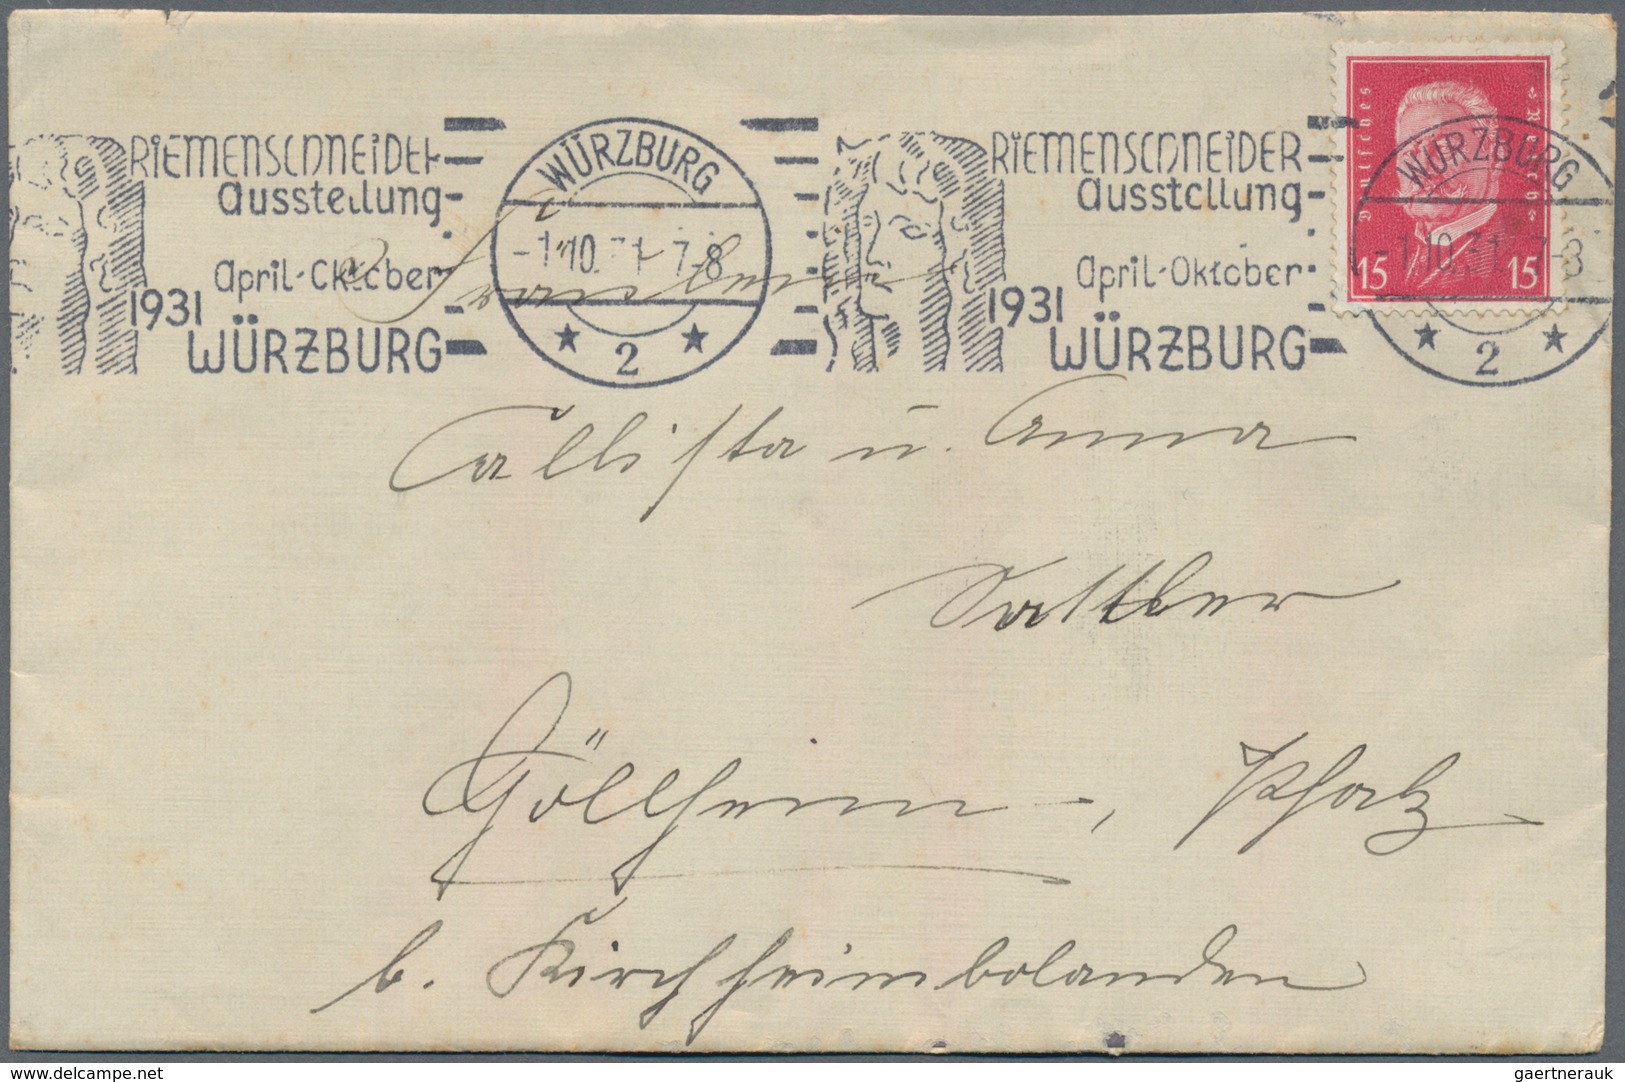 RIEMENSCHNEIDER
Ausstellung
April-Oktober
1931
WÜRZBURG
WÜRZBURG
-1.10.31 7-8
2
RIEMENSCHNEIDER
Ausstellung
April-Oktober
1931
WÜRZBURG
Deutsches Reich
15 15
WÜRZBURG
-1.10.31 7-8
2
Fräulein
Callista u. Anna
Sattler
Göllheim, Pfalz
b. Kirchheimbolanden
www.delcampe.net
gaertnerauk